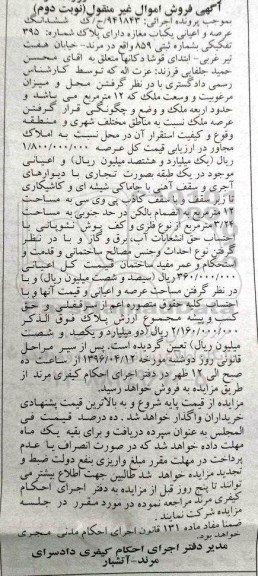 آگهی فروش اموال غیر منقول(نوبت دوم)
بموجب پرونده اجرائی: ۹۴۱۸۴۳/ح/ک ششدانگ
عرصه و اعیانی یکباب مغازه دارای پلاک شماره: ۳۹۵
تفکیکی بشماره ثبتی ۸۵۹ واقع در مرند- خیابان هفت
تیر غربی- ابتدای قوشادکانها متعلق به آقای محسن
حمید جلفایی فرزند: عزت اله که توسط کارشناس
رسمی دادگستری با در نظر گرفتن محل و میزان
مرغوبیت و وسعت ملک که ۱۲ مترمربع می باشد و
حدود اربعه ملک و وضع و چگونگی قرار گرفتن
عرصه ملک نسبت به مناطق مختلف شهری و منطقه
وقوع و کیفیت استقرار آن در محل نسبت به املاک
مجاور در ارزیابی قیمت کل عرصه ۱/۸۰۰/۰۰۰/۰۰۰
ریال (یک میلیارد و هشتصد میلیون ریال) و اعیانی
موجود در یک طبقه بصورت تجاری با دیوارهای
آجری و سقف آهنی با جاماکی شیشه ای و کاشیکاری
تا زیر سقف و با سقف کاذب پی وی سی به مساحت
۱۲ مترمربع به انضمام بالکن در حد جنوبی به مساحت
مترمربع از نوع فلزی و کف پوش نئوپانی با
احتساب حق انشعابات آب، برق و گاز و با در نظر
گرفتن نوع احداث و جنس مصالح ساختمانی و قدمت و
استحکام و عمر مفید ساختمان قیمت کل اعیانی
۳۶۰/۰۰۰/۰۰۰ ریال (سیصد و شصت میلیون ریال) و با
در نظر گرفتن مساحت عرصه و اعیانی و قیمت آنها و با
احتساب کلیه حقوق متصوره اعم از سرقفلی و حق
کسب و پیشه مجموع ارزش پلاک فوق الذکر
۲/۱۶۰/۰۰۰/۰۰۰ ریال (دو میلیارد و یکصد و شصت
میلیون ریال) تعیین گردیده است. پس از سیر مراحل
قانونی روز دوشنبه مورخه ۱۳۹۶/۰۴/۱۲ از ساعت ده
صبح الی ۱۲ ظهر در دفتر اجرای احکام کیفری مرند از
طریق مزایده به فروش خواهد رسید.
مزایده از قیمت پایه شروع و به بالاترین قیمت پیشنهادی
خریداران واگذار خواهد شد. ده درصد قیمت فی
المجلس به عنوان سپرده دریافت و برای بقیه یک ماه
مهلت داده خواهد شد که در صورت انصراف یا عدم
پرداخت در مهلت مقرر مبلغ واریزی بنفع دولت ضبط و
تجدید مزایده خواهد شد طالبین جهت اطلاع بیشتر می
توانند تا پنج روز قبل از مزایده به دفتر اجرای احکام
کیفری مرند مراجعه نموده در مورد مقرر در جلسه
مزایده شرکت نمایند.
ضمنا مفاد ماده ۱۳۱ قانون اجرای احکام مدنی مجری
خواهد بود.
مدیر دفتر اجرای احکام کیفری دادسرای
مرند-آتشبار